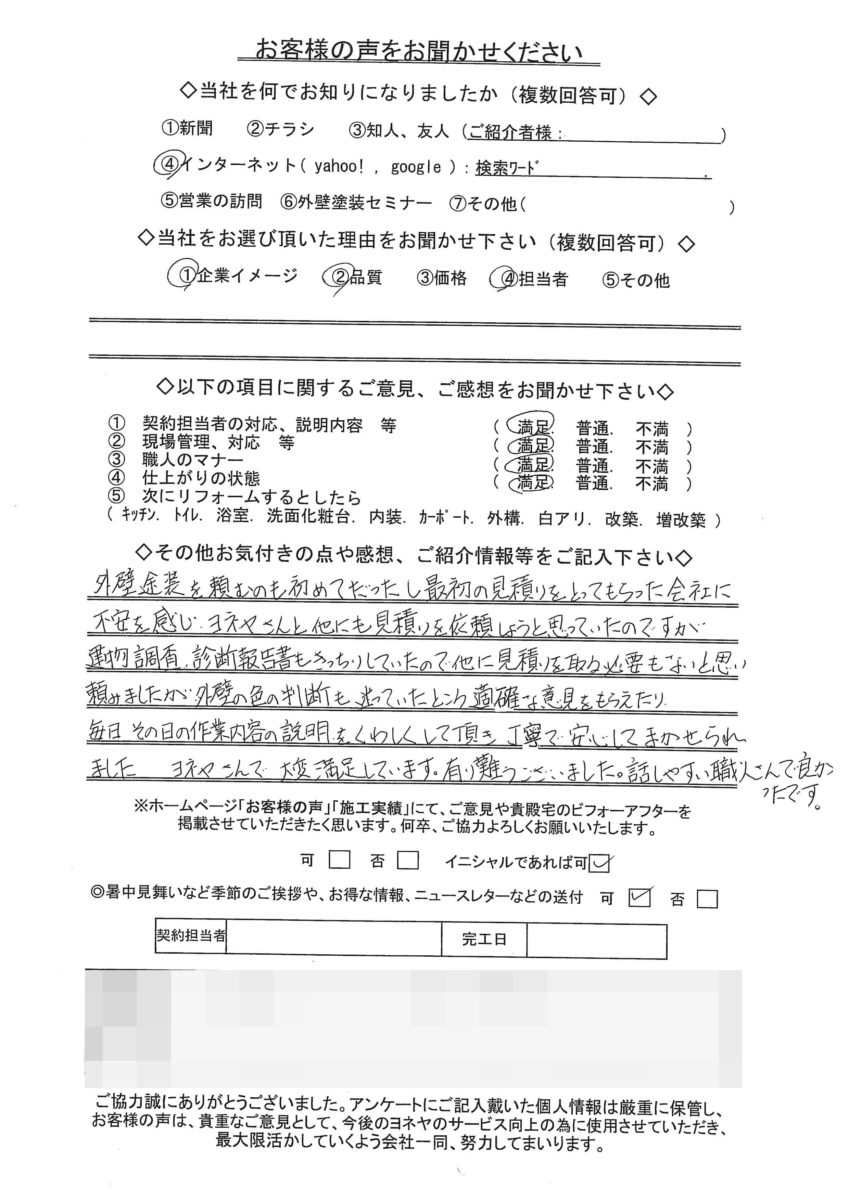 お客様の声をお聞かせください
◇当社を何でお知りになりましたか（複数回答可）◇
①新聞 ②チラシ ③知人、友人（ご紹介者様： ）
④インターネット( yahoo! , google ) : 検索ﾜｰﾄﾞ .
⑤営業の訪問 ⑥外壁塗装セミナー ⑦その他( )
◇当社をお選び頂いた理由をお聞かせ下さい（複数回答可）◇
①企業イメージ ②品質 ③価格 ④担当者 ⑤その他
◇以下の項目に関するご意見、ご感想をお聞かせ下さい◇
① 契約担当者の対応、説明内容 等 ( 満足. 普通. 不満 )
② 現場管理、対応 等 ( 満足. 普通. 不満 )
③ 職人のマナー ( 満足. 普通. 不満 )
④ 仕上がりの状態 ( 満足. 普通. 不満 )
⑤ 次にリフォームするとしたら
( ｷｯﾁﾝ. ﾄｲﾚ. 浴室. 洗面化粧台. 内装. ｶｰﾎﾟｰﾄ. 外構. 白アリ. 改築. 増改築 )
◇その他お気付きの点や感想、ご紹介情報等をご記入下さい◇
外壁塗装を頼むのも初めてだったし最初の見積りをとってもらった会社に
不安を感じ、ヨネヤさんと他にも見積りを依頼しようと思っていたのですが
建物調査、診断報告書もきっちりしていたので他に見積りを取る必要もないと思い
頼みましたが外壁の色の判断も迷っていたところ適確な意見をもらえたり、
毎日その日の作業内容の説明をくわしくして頂き丁寧で安心してまかせられ
ました ヨネヤさんで大変満足しています。有り難うございました。話しやすい職人さんで良か
ったです。
※ホームページ「お客様の声」「施工実績」にて、ご意見や貴殿宅のビフォーアフターを
掲載させていただきたく思います。何卒、ご協力よろしくお願いいたします。
可 □ 否 □ イニシャルであれば可☑
◎暑中見舞いなど季節のご挨拶や、お得な情報、ニュースレターなどの送付 可 ☑ 否 □
契約担当者 完工日
ご協力誠にありがとうございました。アンケートにご記入戴いた個人情報は厳重に保管し、
お客様の声は、貴重なご意見として、今後のヨネヤのサービス向上の為に使用させていただき、
最大限活かしていくよう会社一同、努力してまいります。